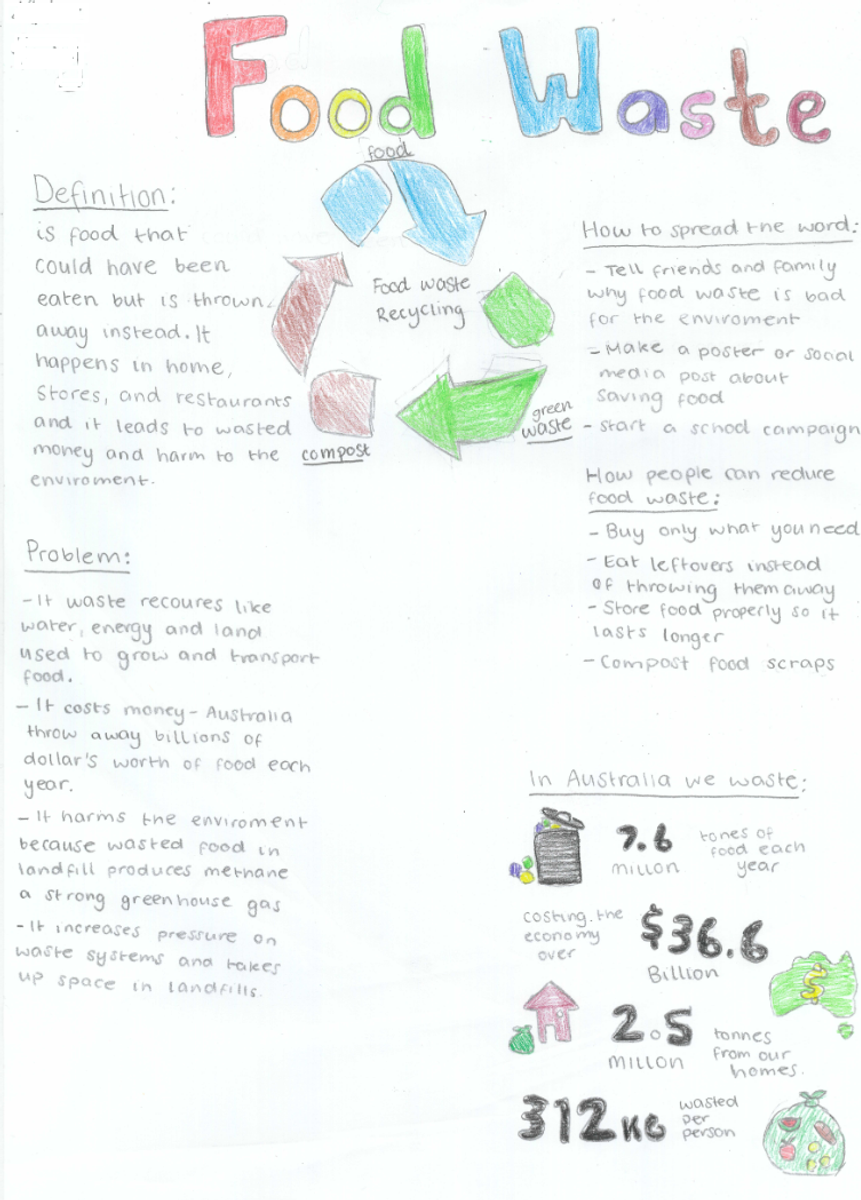 Food Waste
Definition:
is food that
could have been
eaten but is thrown
away instead. It
happens in home,
stores, and restaurants
and it leads to wasted
money and harm to the
enviroment.
food
Food waste
Recycling
green
waste
compost
How to spread the word:
- Tell friends and family
why food waste is bad
for the enviroment
- Make a poster or social
media post about
saving food
- start a school campaign
How people can reduce
food waste:
- Buy only what you need
- Eat leftovers instead
of throwing them away
- Store food properly so it
lasts longer
- Compost food scraps
Problem:
- It waste recoures like
water, energy and land
used to grow and transport
food.
- It costs money - Australia
throw away billions of
dollar's worth of food each
year.
- It harms the enviroment
because wasted food in
landfill produces methane
a strong greenhouse gas
- It increases pressure on
waste systems and takes
up space in landfills.
In Australia we waste:
7.6
millon
tones of
food each
year
costing the
economy
over
$36.6
Billion
$
2.5
millon
tonnes
from our
homes.
312 kg
wasted
per
person